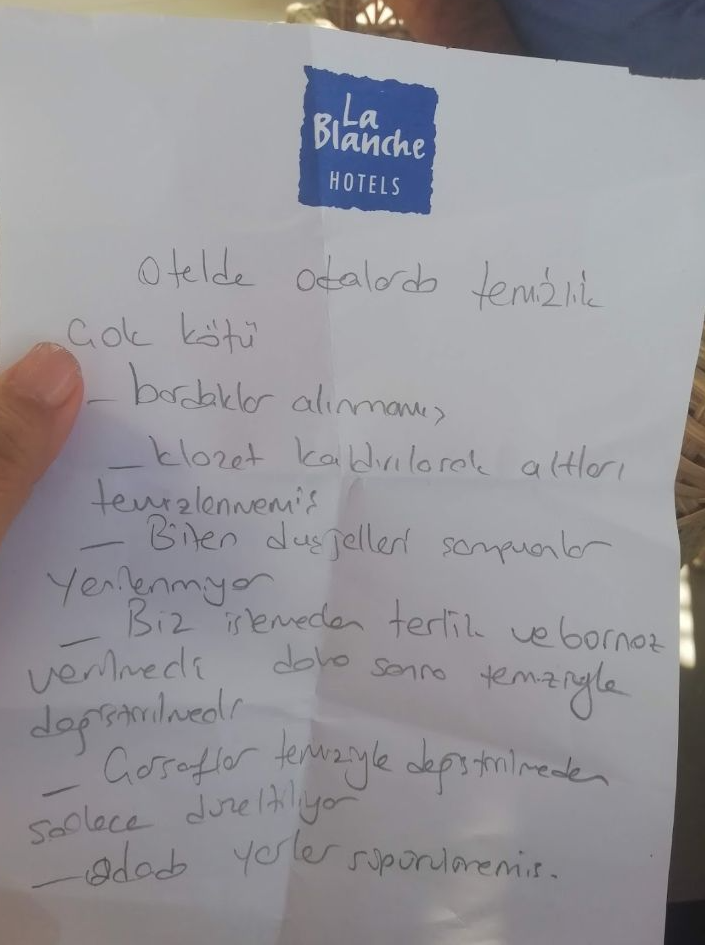 La
Blanche
HOTELS
Otelde odalarda temizlik
Çok kötü
- bardaklar alınmamış
- klozet kaldırılarak altları
temizlenmemiş
- Biten duşjelleri şampuanlar
yenilenmiyor
- Biz istemeden terlik ve bornoz
verilmedi daha sonra temiziyle
değiştirilmedi
- Çarşaflar temiziyle değiştirilmeden
sadece düzeltiliyor
- Odada yerler süpürülmemiş.